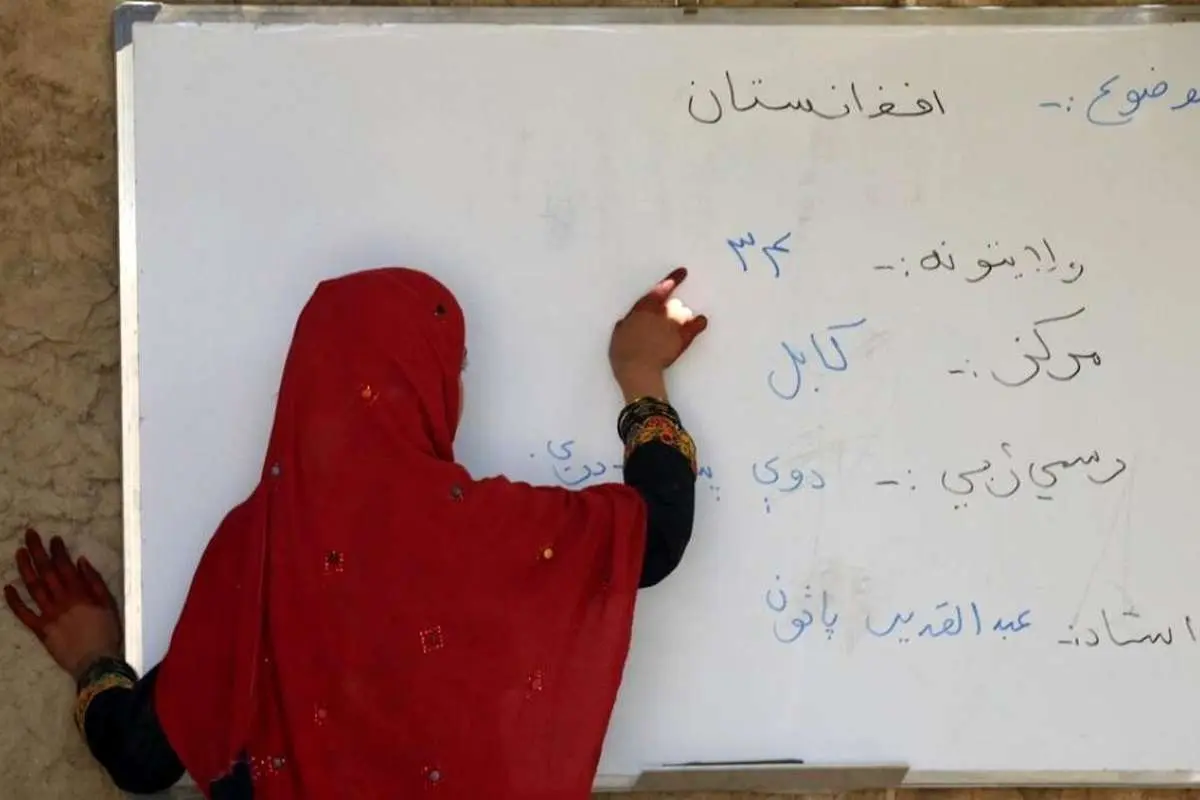 موضوع :- افغانستان
ولايتونه :- ۳۴
مرکز :- کابل
رسمي ژبي :- دوې دري
استاد :- عبدالقدير پاڅون